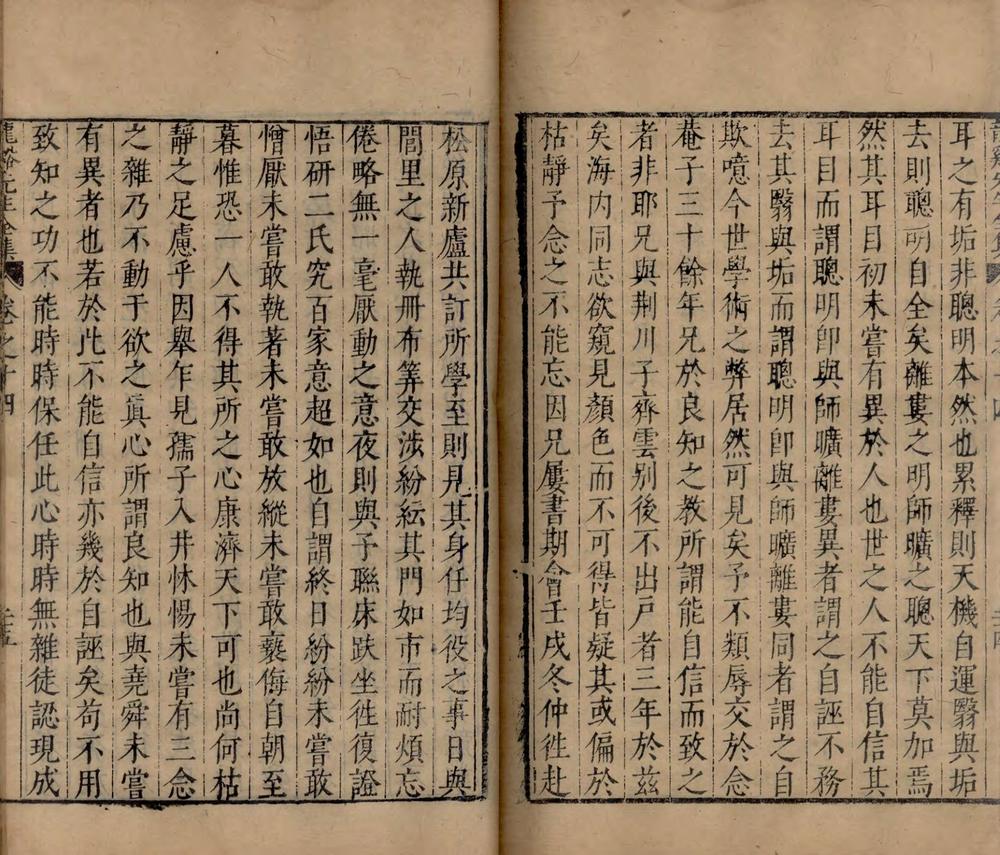 耳之有垢非聰明本然也累釋則天機自運翳與垢
去則聰明自全矣離婁之明師曠之聰天下莫加焉
然其耳目初未嘗有異於人也世之人不能自信其
耳目而謂聰明卽與師曠離婁異者謂之自誣不務
去其翳與垢而謂聰明卽與師曠離婁同者謂之自
欺噫今世學術之弊居然可見矣予不類辱交於念
菴子三十餘年兄於良知之教所謂能自信而致之
者非耶兄與荆川子齊雲别後不出戸者三年於茲
矣海内同志欲窺見顏色而不可得皆疑其或偏於
枯靜予念之不能忘因兄屢書期會壬戌冬仲徃赴
松原新廬共訂所學至則見其身任均役之事日與
閭里之人執冊布筭交涉紛紜其門如市而耐煩忘
倦略無一毫厭動之意夜則與予聯床趺坐徃復證
悟硏二氏究百家意超如也自謂終日紛紛未嘗敢
憎厭未嘗敢執著未嘗敢放縱未嘗敢褻侮自朝至
暮惟恐一人不得其所之心康濟天下可也尚何枯
靜之足慮乎因舉乍見孺子入井怵惕未嘗有三念
之雜乃不動于欲之眞心所謂良知也與堯舜未嘗
有異者也若於此不能自信亦幾於自誣矣苟不用
致知之功不能時時保任此心時時無雜徒認現成
龍谿先生全集 卷之十四